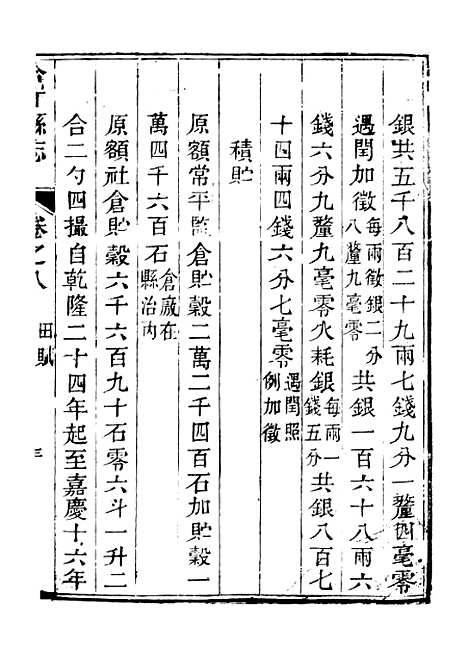 銀共五千八百二十九兩七錢九分一釐四毫零
遇閏加徵每兩徵銀二分八釐九毫零共銀一百六十八兩六
錢六分九釐九毫零火耗銀每兩一錢五分共銀八百七
十四兩四錢六分七毫零遇閏照例加徵
積貯
原額常平監倉貯穀二萬二千四百石加貯穀一
萬四千六百石倉廒在縣治內
原額社倉貯穀六千六百九十石零六斗一升二
合二勺四撮自乾隆二十四年起至嘉慶十六年
縣志
卷之八
田賦